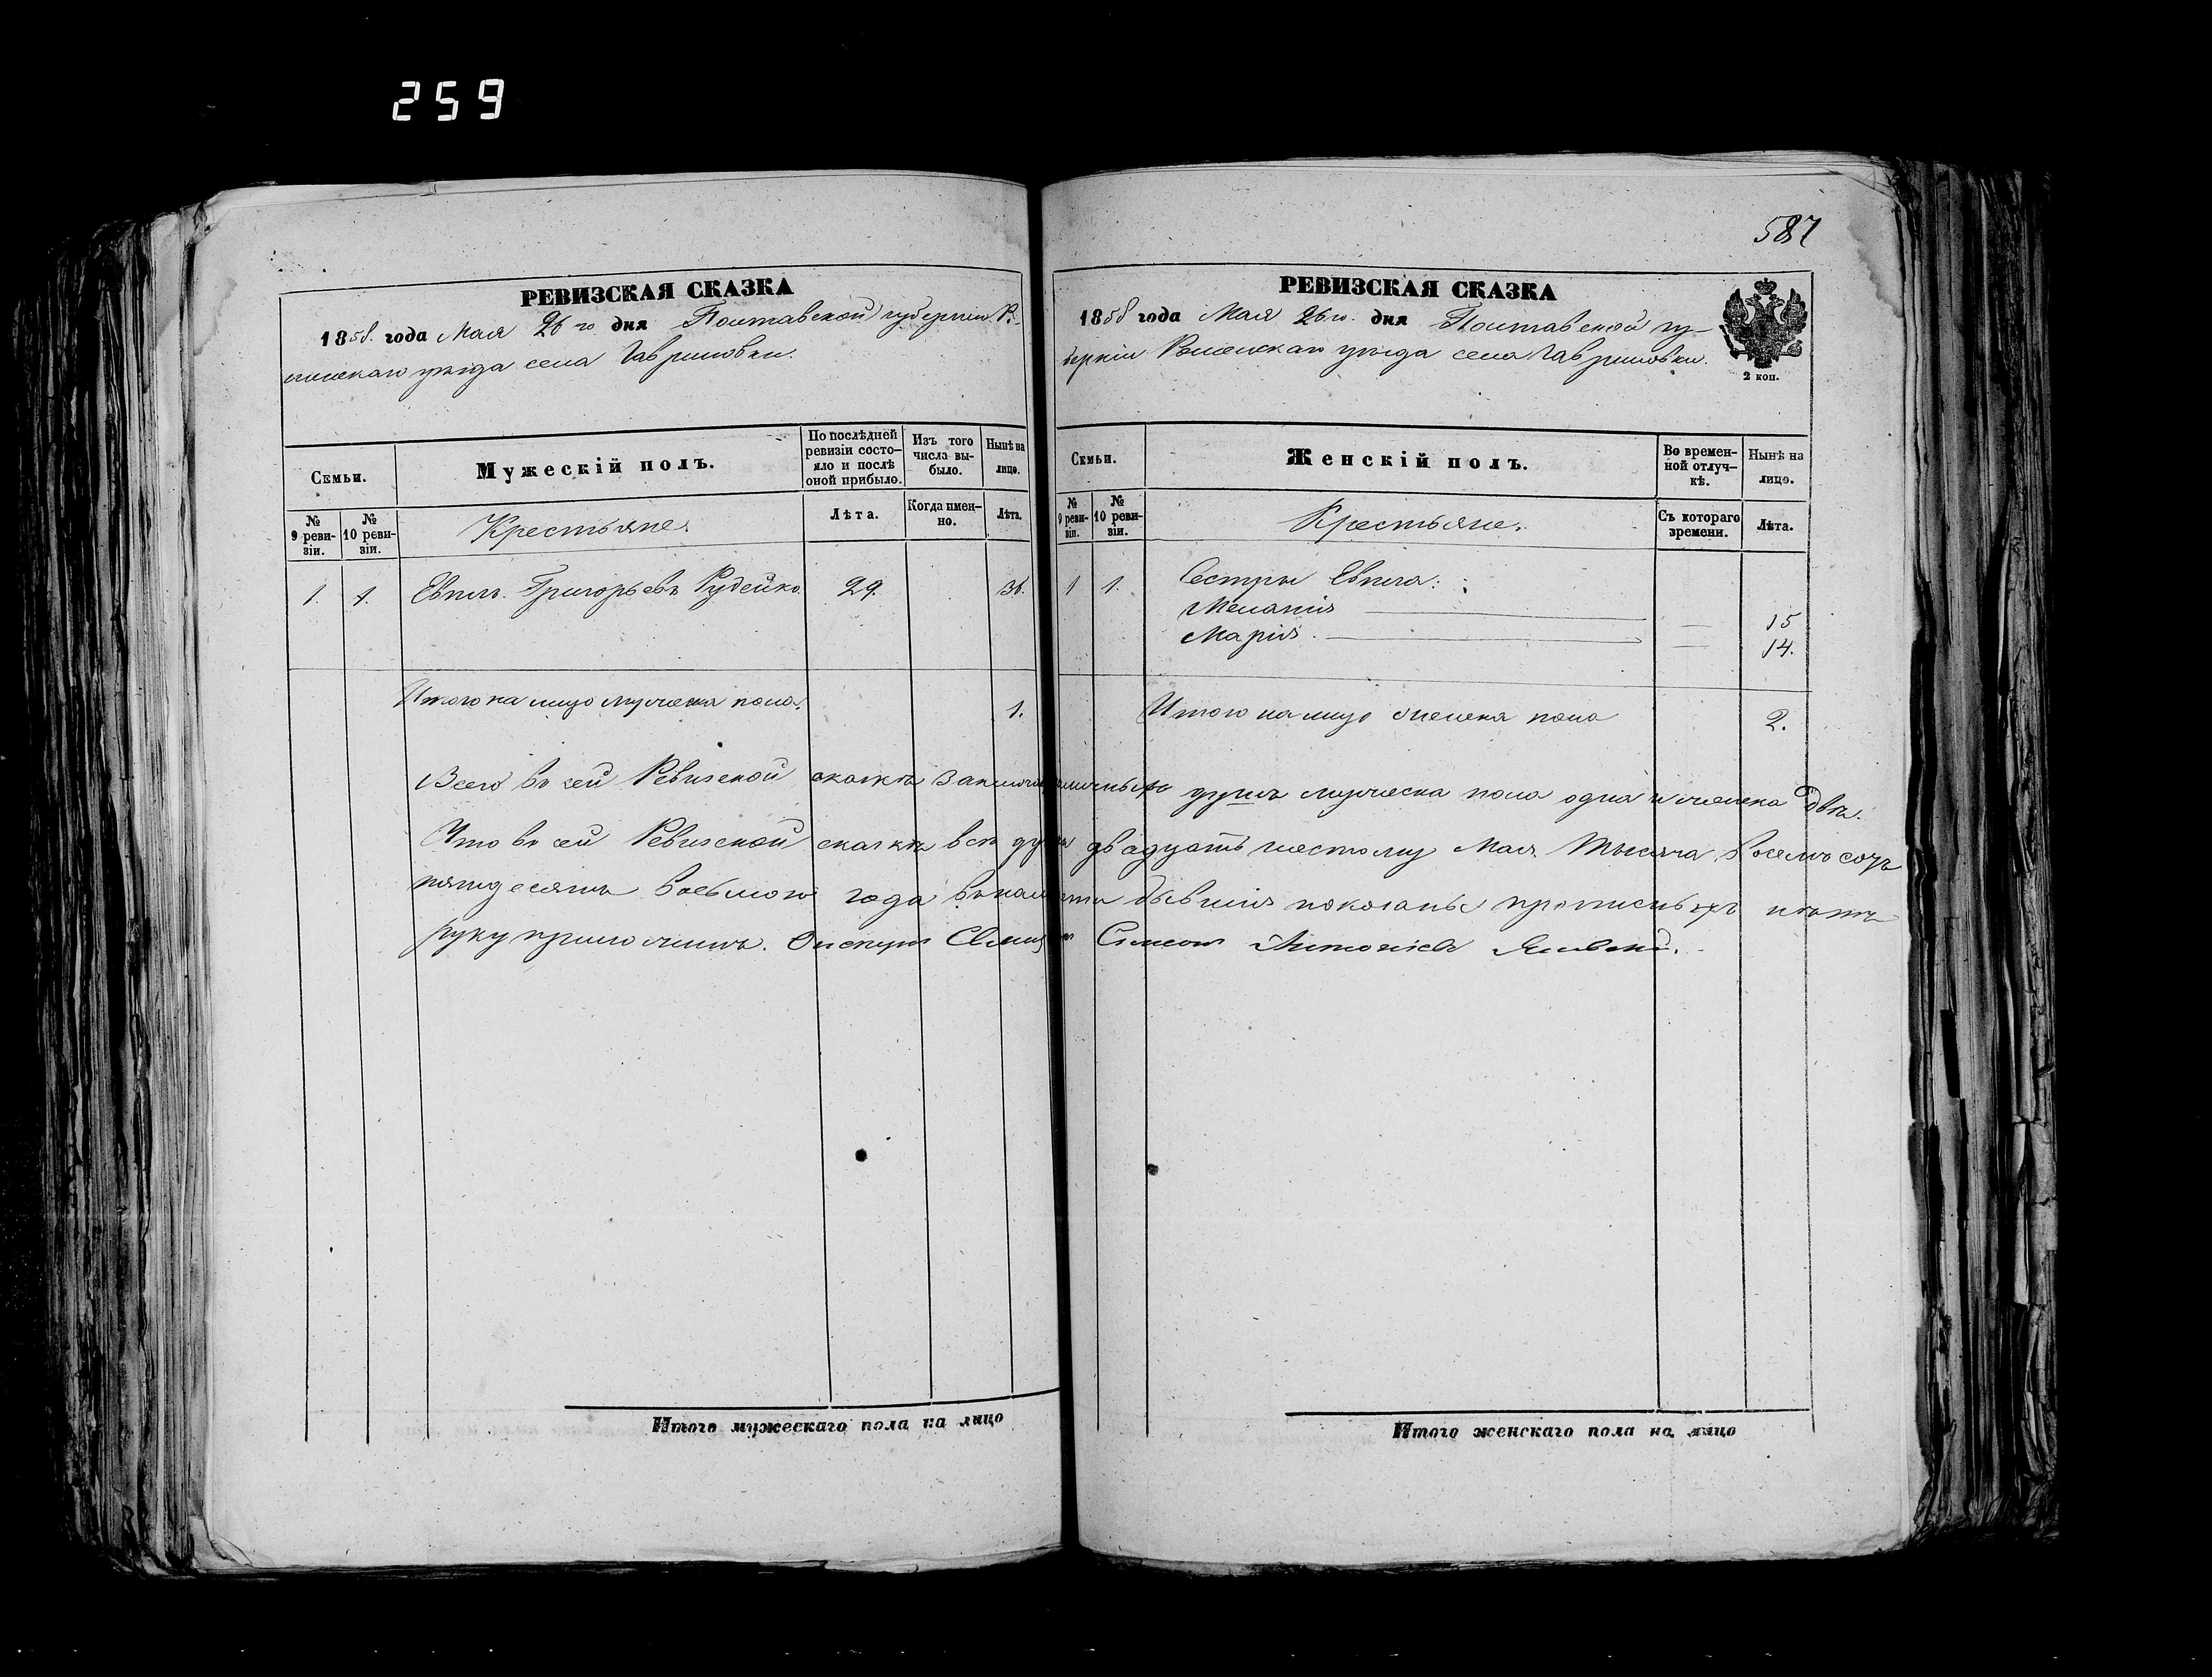 259
587
РЕВИЗСКАЯ СКАЗКА
1858. года Мая 26 го дня Полтавской губерніи Ро-
менскаго уѣзда села Гавриловки.
Семьи.
Мужескій полъ.
По послѣдней ревизіи состо-яло и послѣ оной прибыло.
Изъ того числа вы-было.
Нынѣ на лицо.
№ 9 реви-зіи.
№ 10 реви-зіи.
Крестьяне.
Лѣта.
Когда имен-но.
Лѣта.
1. 1. Евплъ Григорьевъ Рудейко. 29. 36.
Итого на лицо мужеска пола. 1.
РЕВИЗСКАЯ СКАЗКА
1858 года Мая 26 го. дня Полтавской гу-
берніи Роменскаго уѣзда села Гавриловки.
2 коп.
Семьи.
Женскій полъ.
Во времен-ной отлуч-кѣ.
Нынѣ на лицо.
№ 9 реви-зіи.
№ 10 реви-зіи.
Крестьяне.
Съ котораго времени.
Лѣта.
1 1. Сестры Евпла:
Меланія — 15
Марія — 14.
Итого на лицо женска пола 2.
Всего въ сей Ревизской сказкѣ наличныхъ душъ мужеска пола одна и женска двѣ.
Что въ сей Ревизской сказкѣ всѣ души двадцать шестому Мая Тысяча восемь сотъ
пятдесятъ восьмого года бывшія показаны прописныхъ нѣтъ
руку приложилъ. Опекунъ Симеонъ Антоніевъ
Итого мужескаго пола на лицо
Итого женскаго пола на лицо